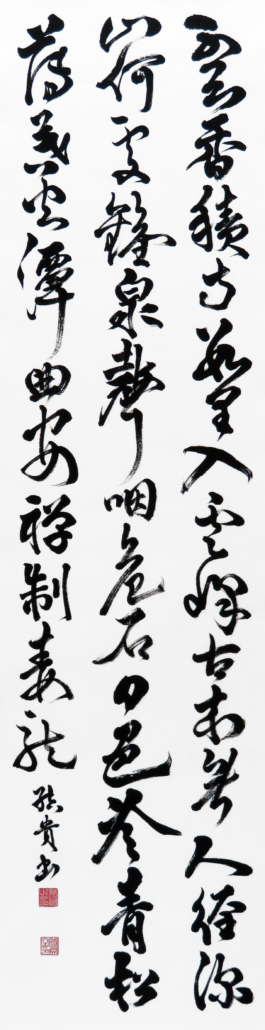 不知香積寺數里入雲峰古木無人徑深
山何處鐘泉聲咽危石日色冷青松
薄暮空潭曲安禅制毒龍
貴書